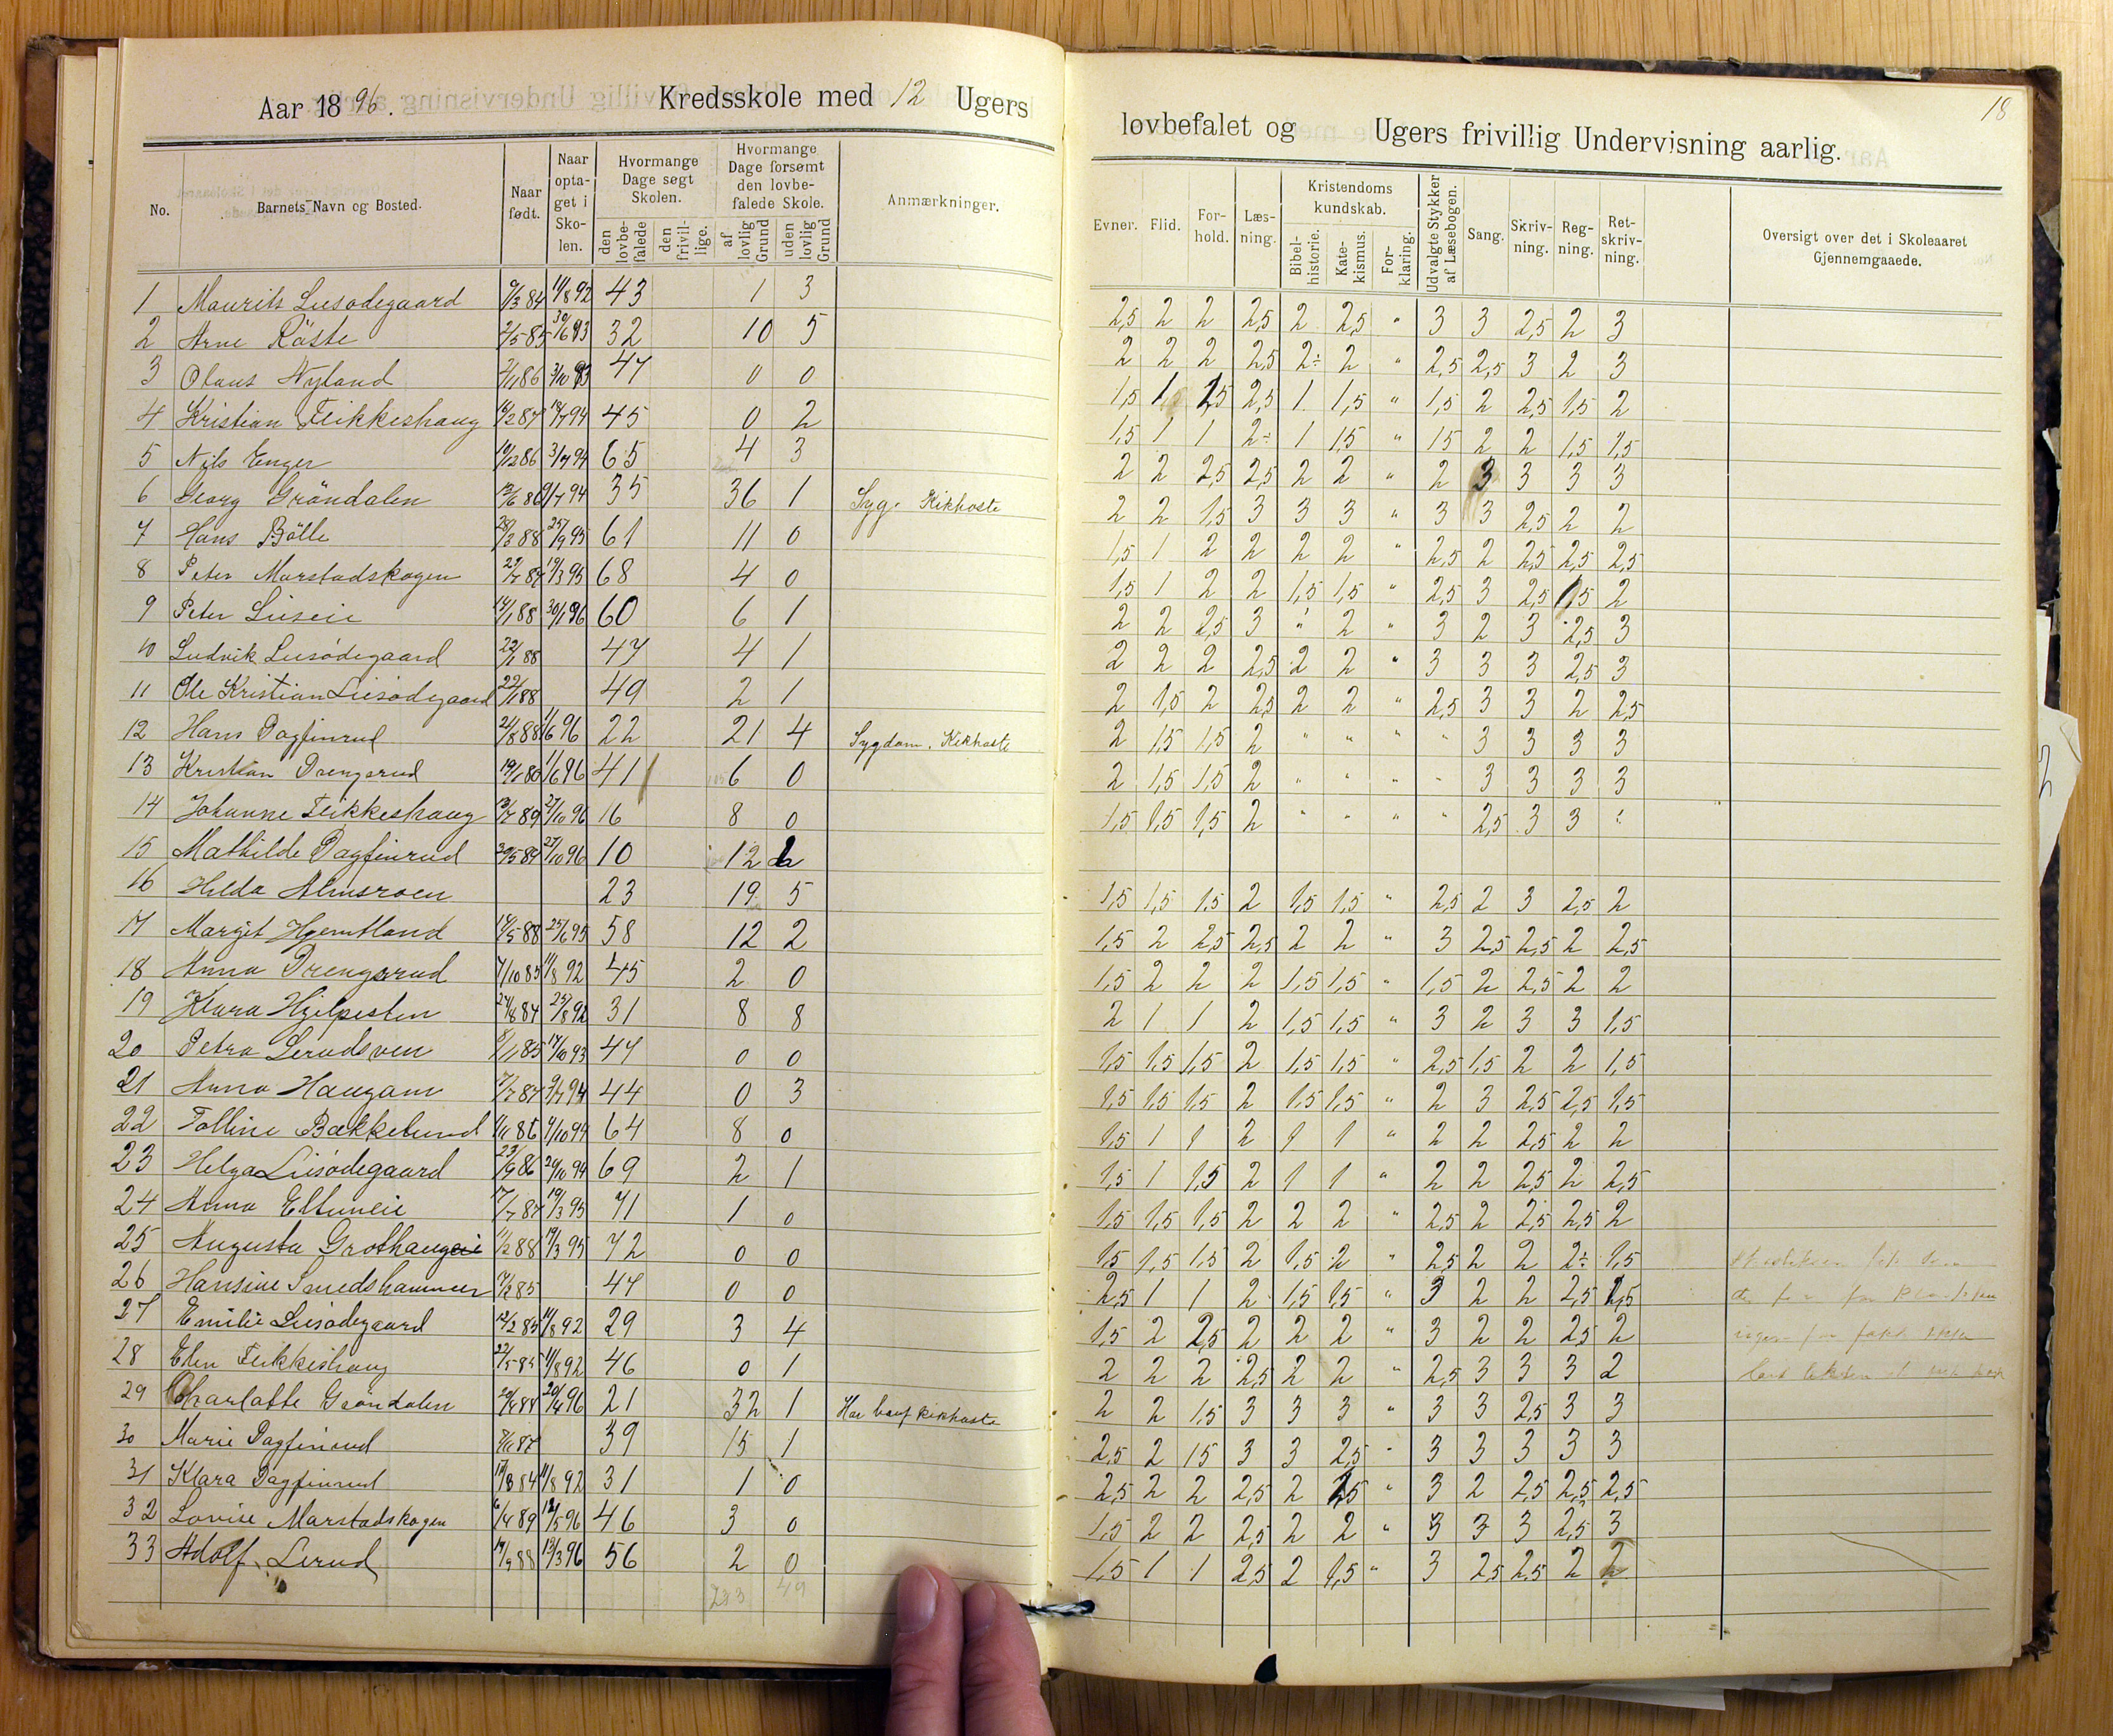 Aar 1896. Kredsskole med 12 Ugers
lovbefalet og Ugers frivillig Undervisning aarlig.
18
No. Barnets Navn og Bosted. Naar født. Naar optaget i Skolen. Hvormange Dage søgt Skolen. den lovbefalede den frivillige. Hvormange Dage forsømt den lovbefalede Skole. af lovlig Grund uden lovlig Grund Anmærkninger.
Evner. Flid. Forhold. Læsning. Kristendomskundskab. Bibelhistorie. Katekismus. Forklaring. Udvalgte Stykker af Læsebogen. Sang. Skrivning. Regning. Retskrivning. Oversigt over det i Skoleaaret Gjennemgaaede.
1 Maurits Liesødegaard 9/3 84 11/8 92 43 1 3 2,5 2 2 2,5 2 2,5 " 3 3 2,5 2 3
2 Arne Råste 2/5 85 30/6 93 32 10 5 2 2 2 2,5 2÷ 2 " 2,5 2,5 3 2 3
3 Olaus Nyland 2/11 86 3/10 93 47 0 0 1,5 1 2,5 2,5 1 1,5 " 1,5 2 2,5 1,5 2
4 Kristian Flikkeshaug 16/2 87 18/7 94 45 0 2 1,5 1 1 2÷ 1 1,5 " 15 2 2 1,5 1,5
5 Nils Enger 19/12 86 3/7 94 65 4 3 2 2 2,5 2,5 2 2 " 2 3 3 3 3
6 Georg Gröndalen 94 35 36 1 Syg. Kikhoste 2 2 1,5 3 3 3 " 3 3 2,5 2 2
7 Hans Bölle 28/3 88 25/9 95 61 11 0 1,5 1 2 2 2 2 " 2,5 2 2,5 2,5 2,5
8 Peter Marstadskogen 29/7 87 19/3 95 68 4 0 1,5 1 2 2 1,5 1,5 " 2,5 3 2,5 1,5 2
9 Peter Liiseie 14/1 88 30/1 96 60 6 1 2 2 2,5 3 " 2 " 3 2 3 2,5 3
10 Ludvik Liesödegaard 22/1 88 47 4 1 2 2 2 2,5 2 2 " 3 3 3 2,5 3
11 Ole Kristian Liesödegaard 22/1 88 49 2 1 2 1,5 2 2,5 2 2 " 2,5 3 3 2 2,5
12 Hans Dagfinrud 24/8 88 1/6 96 22 21 4 Sygdom. Kikhoste 2 1,5 1,5 2 " " " " 3 3 3 3
13 Kristian Drengsrud 1/6 96 41 6 0 2 1,5 1,5 2 " " " " 3 3 3 3
14 Johanne Flikkeshaug 13/7 89 27/10 96 16 8 0 1,5 1,5 1,5 2 " " " " 2,5 3 3 "
15 Mathilde Dagfinrud 27/10 96 10 12 2
16 Hilda Almsroen 23 19 5 1,5 1,5 1,5 2 1,5 1,5 " 2,5 2 3 2,5 2
17 Margit Hjemtland 14/5 88 25/6 95 58 12 2 1,5 2 2,5 2,5 2 2 " 3 2,5 2,5 2 2,5
18 Anna Drengsrud 7/10 85 11/8 92 45 2 0 1,5 2 2 2 1,5 1,5 " 1,5 2 2,5 2 2
19 Klara Hjelpesten 24/8 84 25/8 92 31 8 8 2 1 1 2 1,5 1,5 " 3 2 3 3 1,5
20 Petra Lerudsven 8/1 85 17/10 93 47 0 0 1,5 1,5 1,5 2 1,5 1,5 " 2,5 1,5 2 2 1,5
21 Anna Haugam 7/7 87 9/7 94 44 0 3 1,5 1,5 1,5 2 1,5 1,5 " 2 3 2,5 2,5 1,5
22 Talline Bækkelund 1/11 86 4/10 94 64 8 0 1,5 1 1 2 1 1 " 2 2 2,5 2 2
23 Helga Liisödegaard 23/9 86 29/10 94 69 2 1 1,5 1 1,5 2 1 1 " 2 2 2,5 2 2,5
24 Anna Eltuneie 17/7 87 19/3 95 71 1 0 1,5 1,5 1,5 2 2 2 " 2,5 2 2,5 2,5 2
25 Augusta Grothaug 11/2 88 19/3 95 72 0 0 1,5 1,5 1,5 2 1,5 2 " 2,5 2 2 2÷ 1,5
26 Hansine Smedshammer 7/2 85 47 0 0 2,5 1 1 2 1,5 1,5 " 3 2 2 2,5 2,5
27 Emilie Liesödegaard 12/2 85 11/8 92 29 3 4 1,5 2 2,5 2 2 2 " 3 2 2 2,5 2
28 Elen Flikkeshaug 22/5 85 11/8 92 46 0 1 2 2 2 2,5 2 2 " 2,5 3 3 3 2
29 Charlotte Gröndalen 20/4 96 21 32 1 Har havt kikhoste 2 2 1,5 3 3 3 " 3 3 2,5 3 3
30 Marie Dagfinrud 2/11 87 39 15 1 2,5 2 15 3 3 2,5 " 3 3 3 3 3
31 Klara Dagfinrud 84 11/8 92 31 1 0 2,5 2 2 2,5 2 2,5 " 3 2 2,5 2,5 2,5
32 Lovise Marstadskogen 6/4 89 12/5 96 46 3 0 1,5 2 2 2,5 2 2 " 3 3 3 2,5 3
33 Adolf Lerud 14/9 88 13/3 96 56 2 0 1,5 1 1 2,5 2 1,5 " 3 2,5 2,5 2 2
233 49